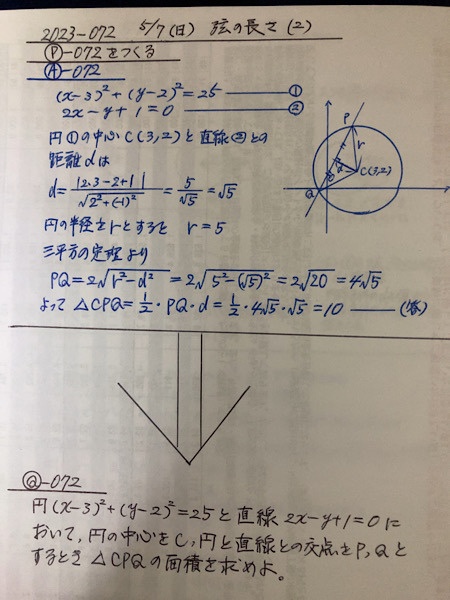 2023-072 5/7(日) 弦の長さ(2)
Ⓟ-072をつくる
Ⓐ-072
(x-3)²+(y-2)²=25 ――― ①
2x-y+1=0 ――― ②
円①の中心C(3,2)と直線②との
距離dは
d=|2・3-2+1|/√(2²+(-1)²)=5/√5=√5
円の半径をrとすると r=5
三平方の定理より
PQ=2√(r²-d²)=2√(5²-(√5)²)=2√20=4√5
よって △CPQ=1/2・PQ・d=1/2・4√5・√5=10 ――― (答)
P
r
d
C(3,2)
Q
Ⓠ-072
円(x-3)²+(y-2)²=25と直線2x-y+1=0に
おいて,円の中心をC,円と直線との交点をP,Qと
するとき△CPQの面積を求めよ。